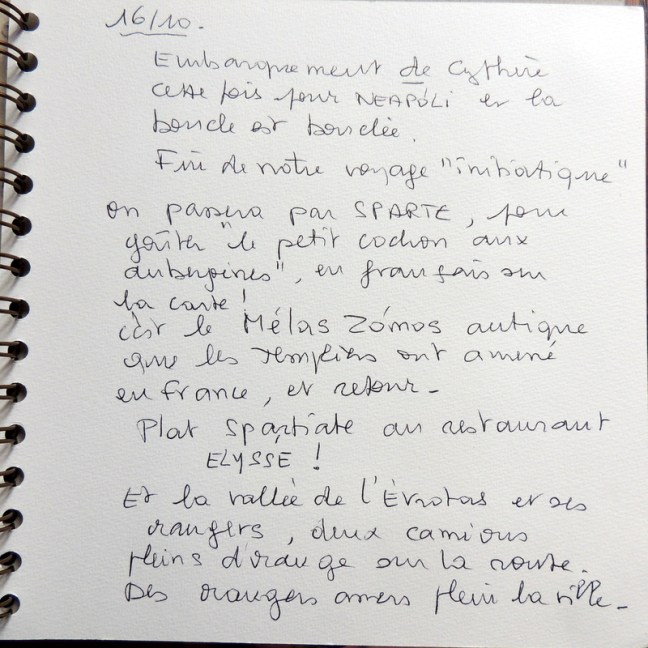 16/10.
Embarquement de Cythère
cette fois pour NEAPÓLI et la
boucle est bouclée.
Fin de notre voyage "initiatique"
on passera par SPARTE, pour
goûter "le petit cochon aux
aubergines", en français sur
la carte !
c'est le Mélas Zómos antique
que les Templiers ont amené
en france, et retour -
Plat spartiate au restaurant
ELYSSE !
Et la vallée de l'Evrotas et ses
orangers, deux camions
pleins d'orange sur la route.
Des orangers amers plein la ville -